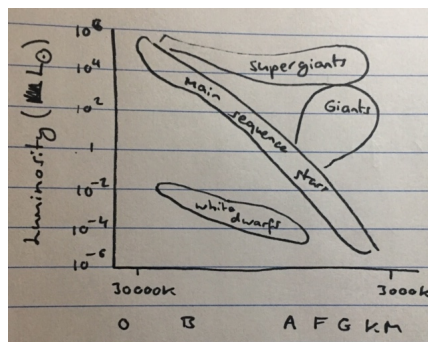 Luminosity (L☉)
10⁸
10⁴
10²
1
10⁻²
10⁻⁴
10⁻⁶
Supergiants
Giants
Main sequence stars
white
dwarfs
30000K
3000K
O B A F G K M